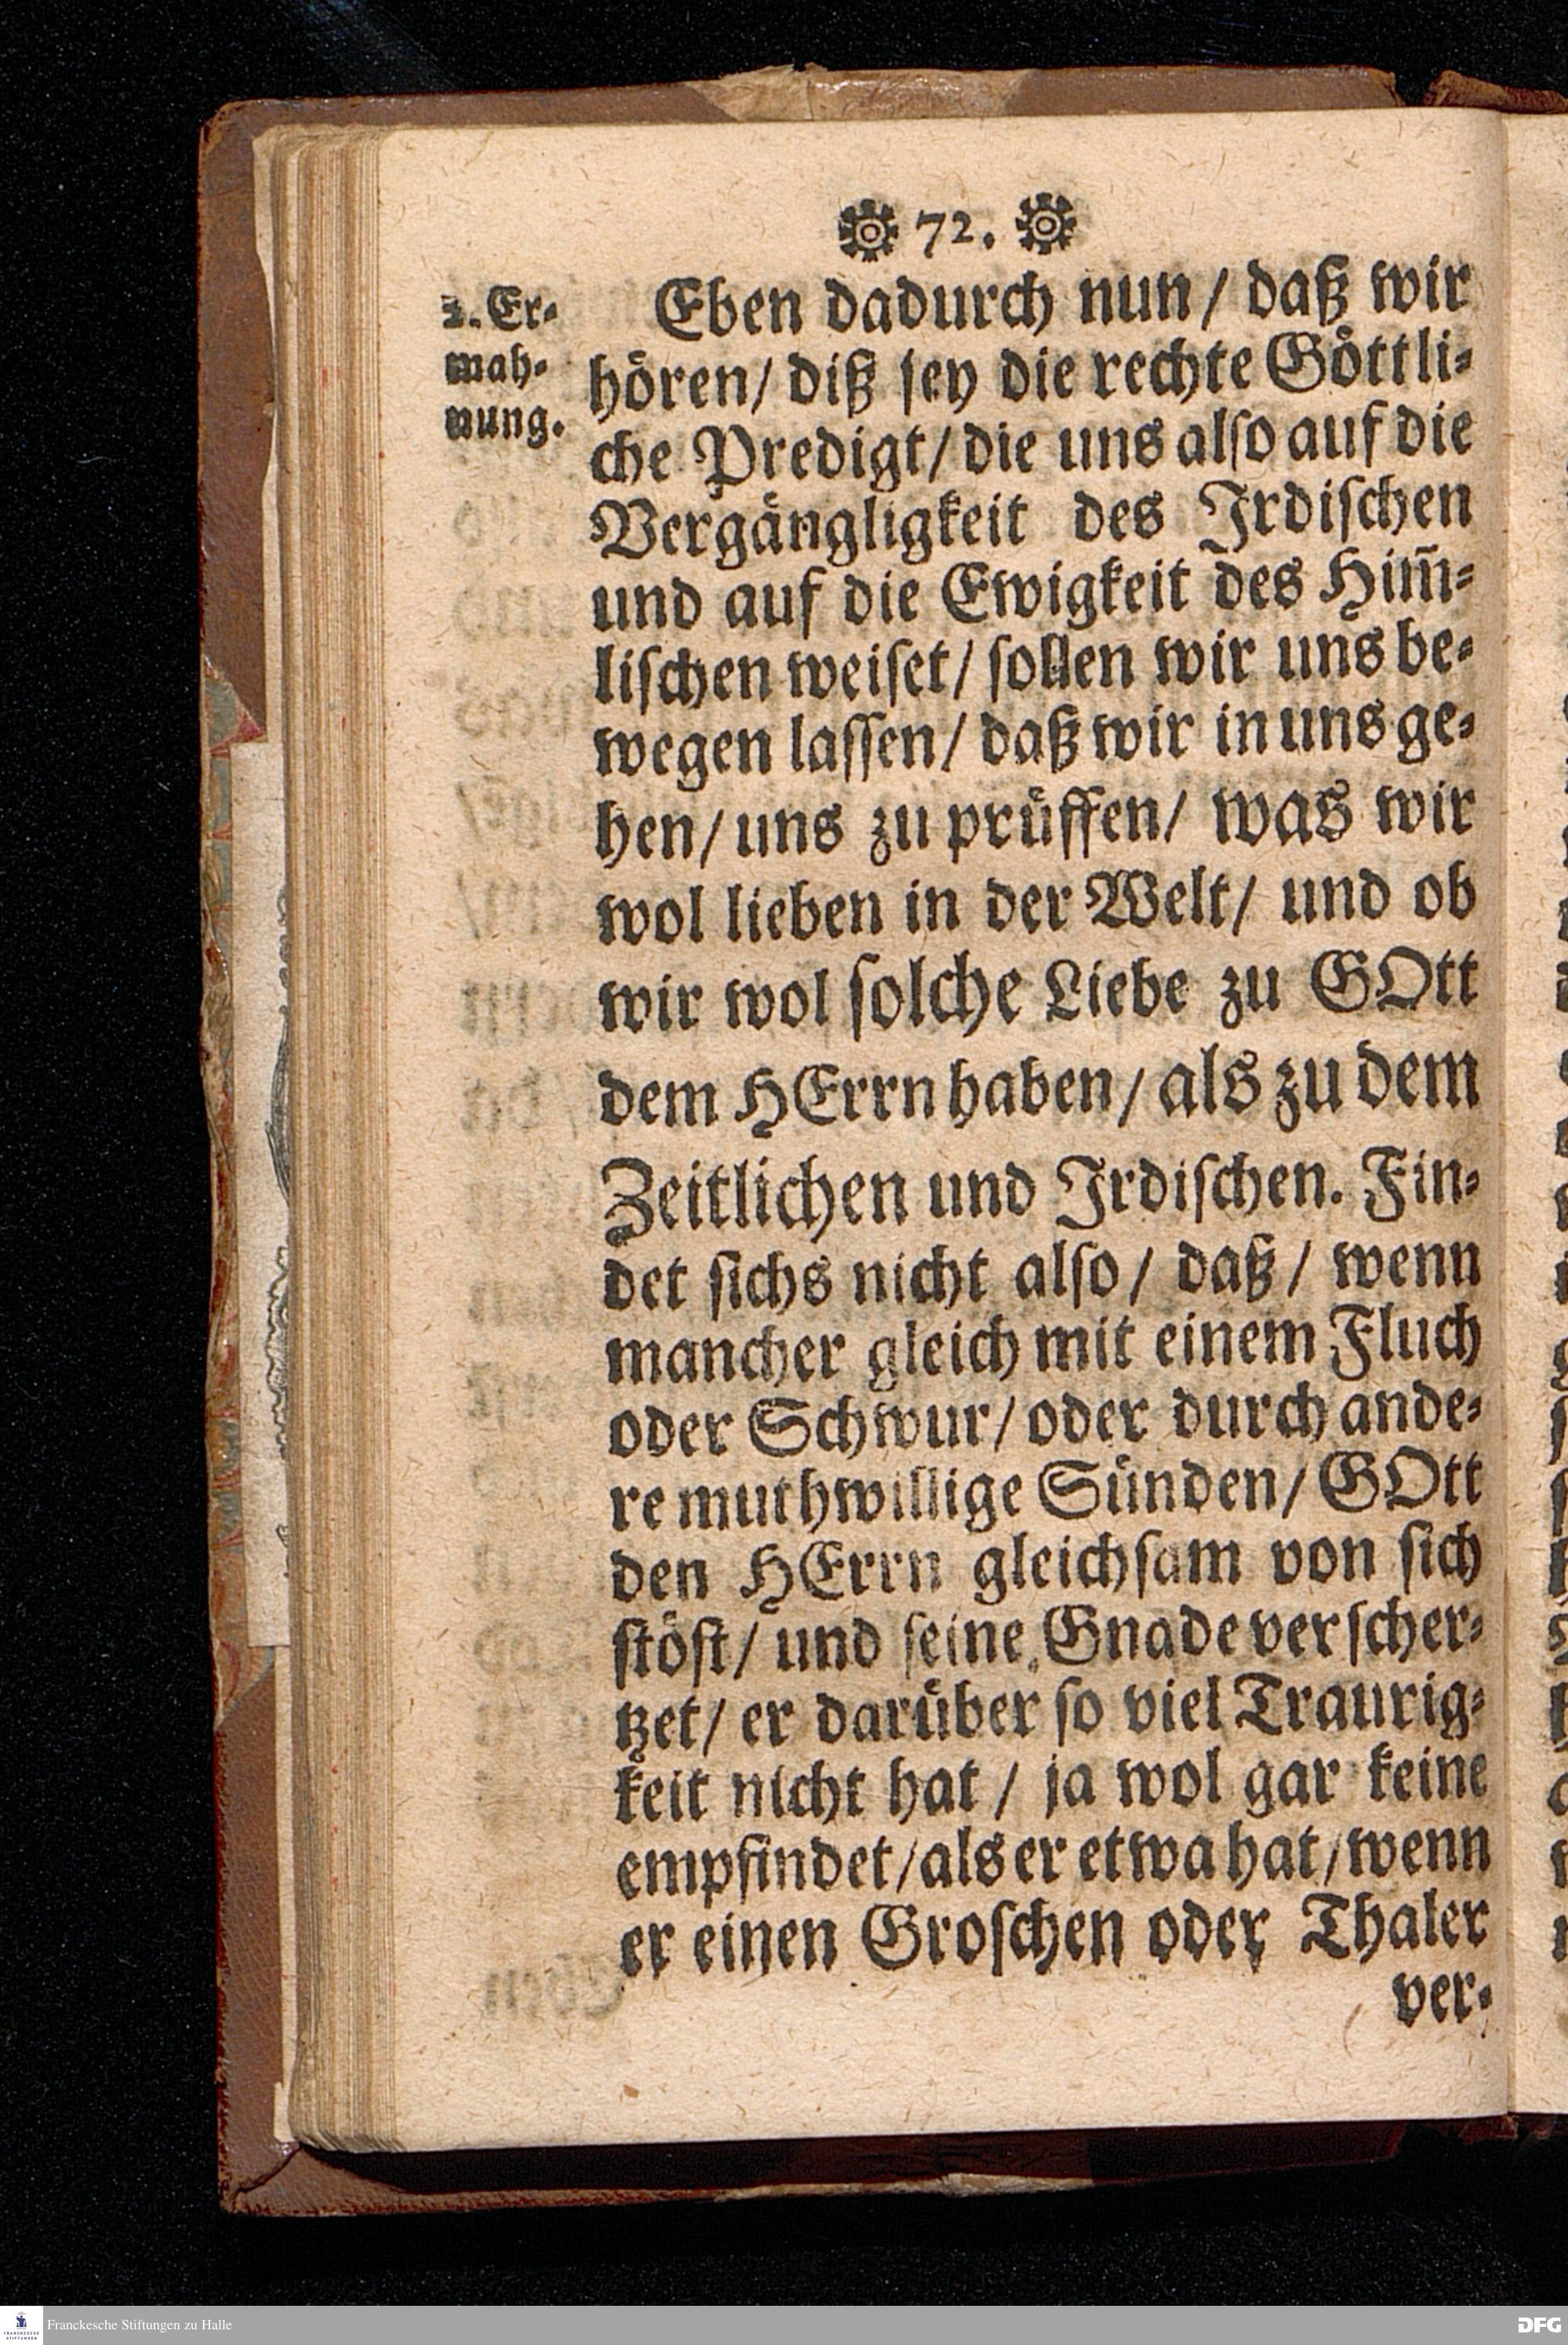 72.
2. Er-
mah-
nung.
Eben dadurch nun / daß wir
hören/ diß sey die rechte Göttli-
che Predigt/ die uns also auf die
Vergängligkeit des Irdischen
und auf die Ewigkeit des Him̃-
lischen weiset/ sollen wir uns be-
wegen lassen/ daß wir in uns ge-
hen/ uns zu prüffen/ was wir
wol lieben in der Welt/ und ob
wir wol solche Liebe zu GOtt
dem HErrn haben/ als zu dem
Zeitlichen und Irdischen. Fin-
det sichs nicht also/ daß/ wenn
mancher gleich mit einem Fluch
oder Schwur/ oder durch ande-
re muthwillige Sünden/ GOtt
den HErrn gleichsam von sich
stöst/ und seine Gnade verscher-
tzet/ er darüber so viel Traurig-
keit nicht hat / ja wol gar keine
empfindet/ als er etwa hat/ wenn
er einen Groschen oder Thaler
ver-
Franckesche Stiftungen zu Halle
DFG